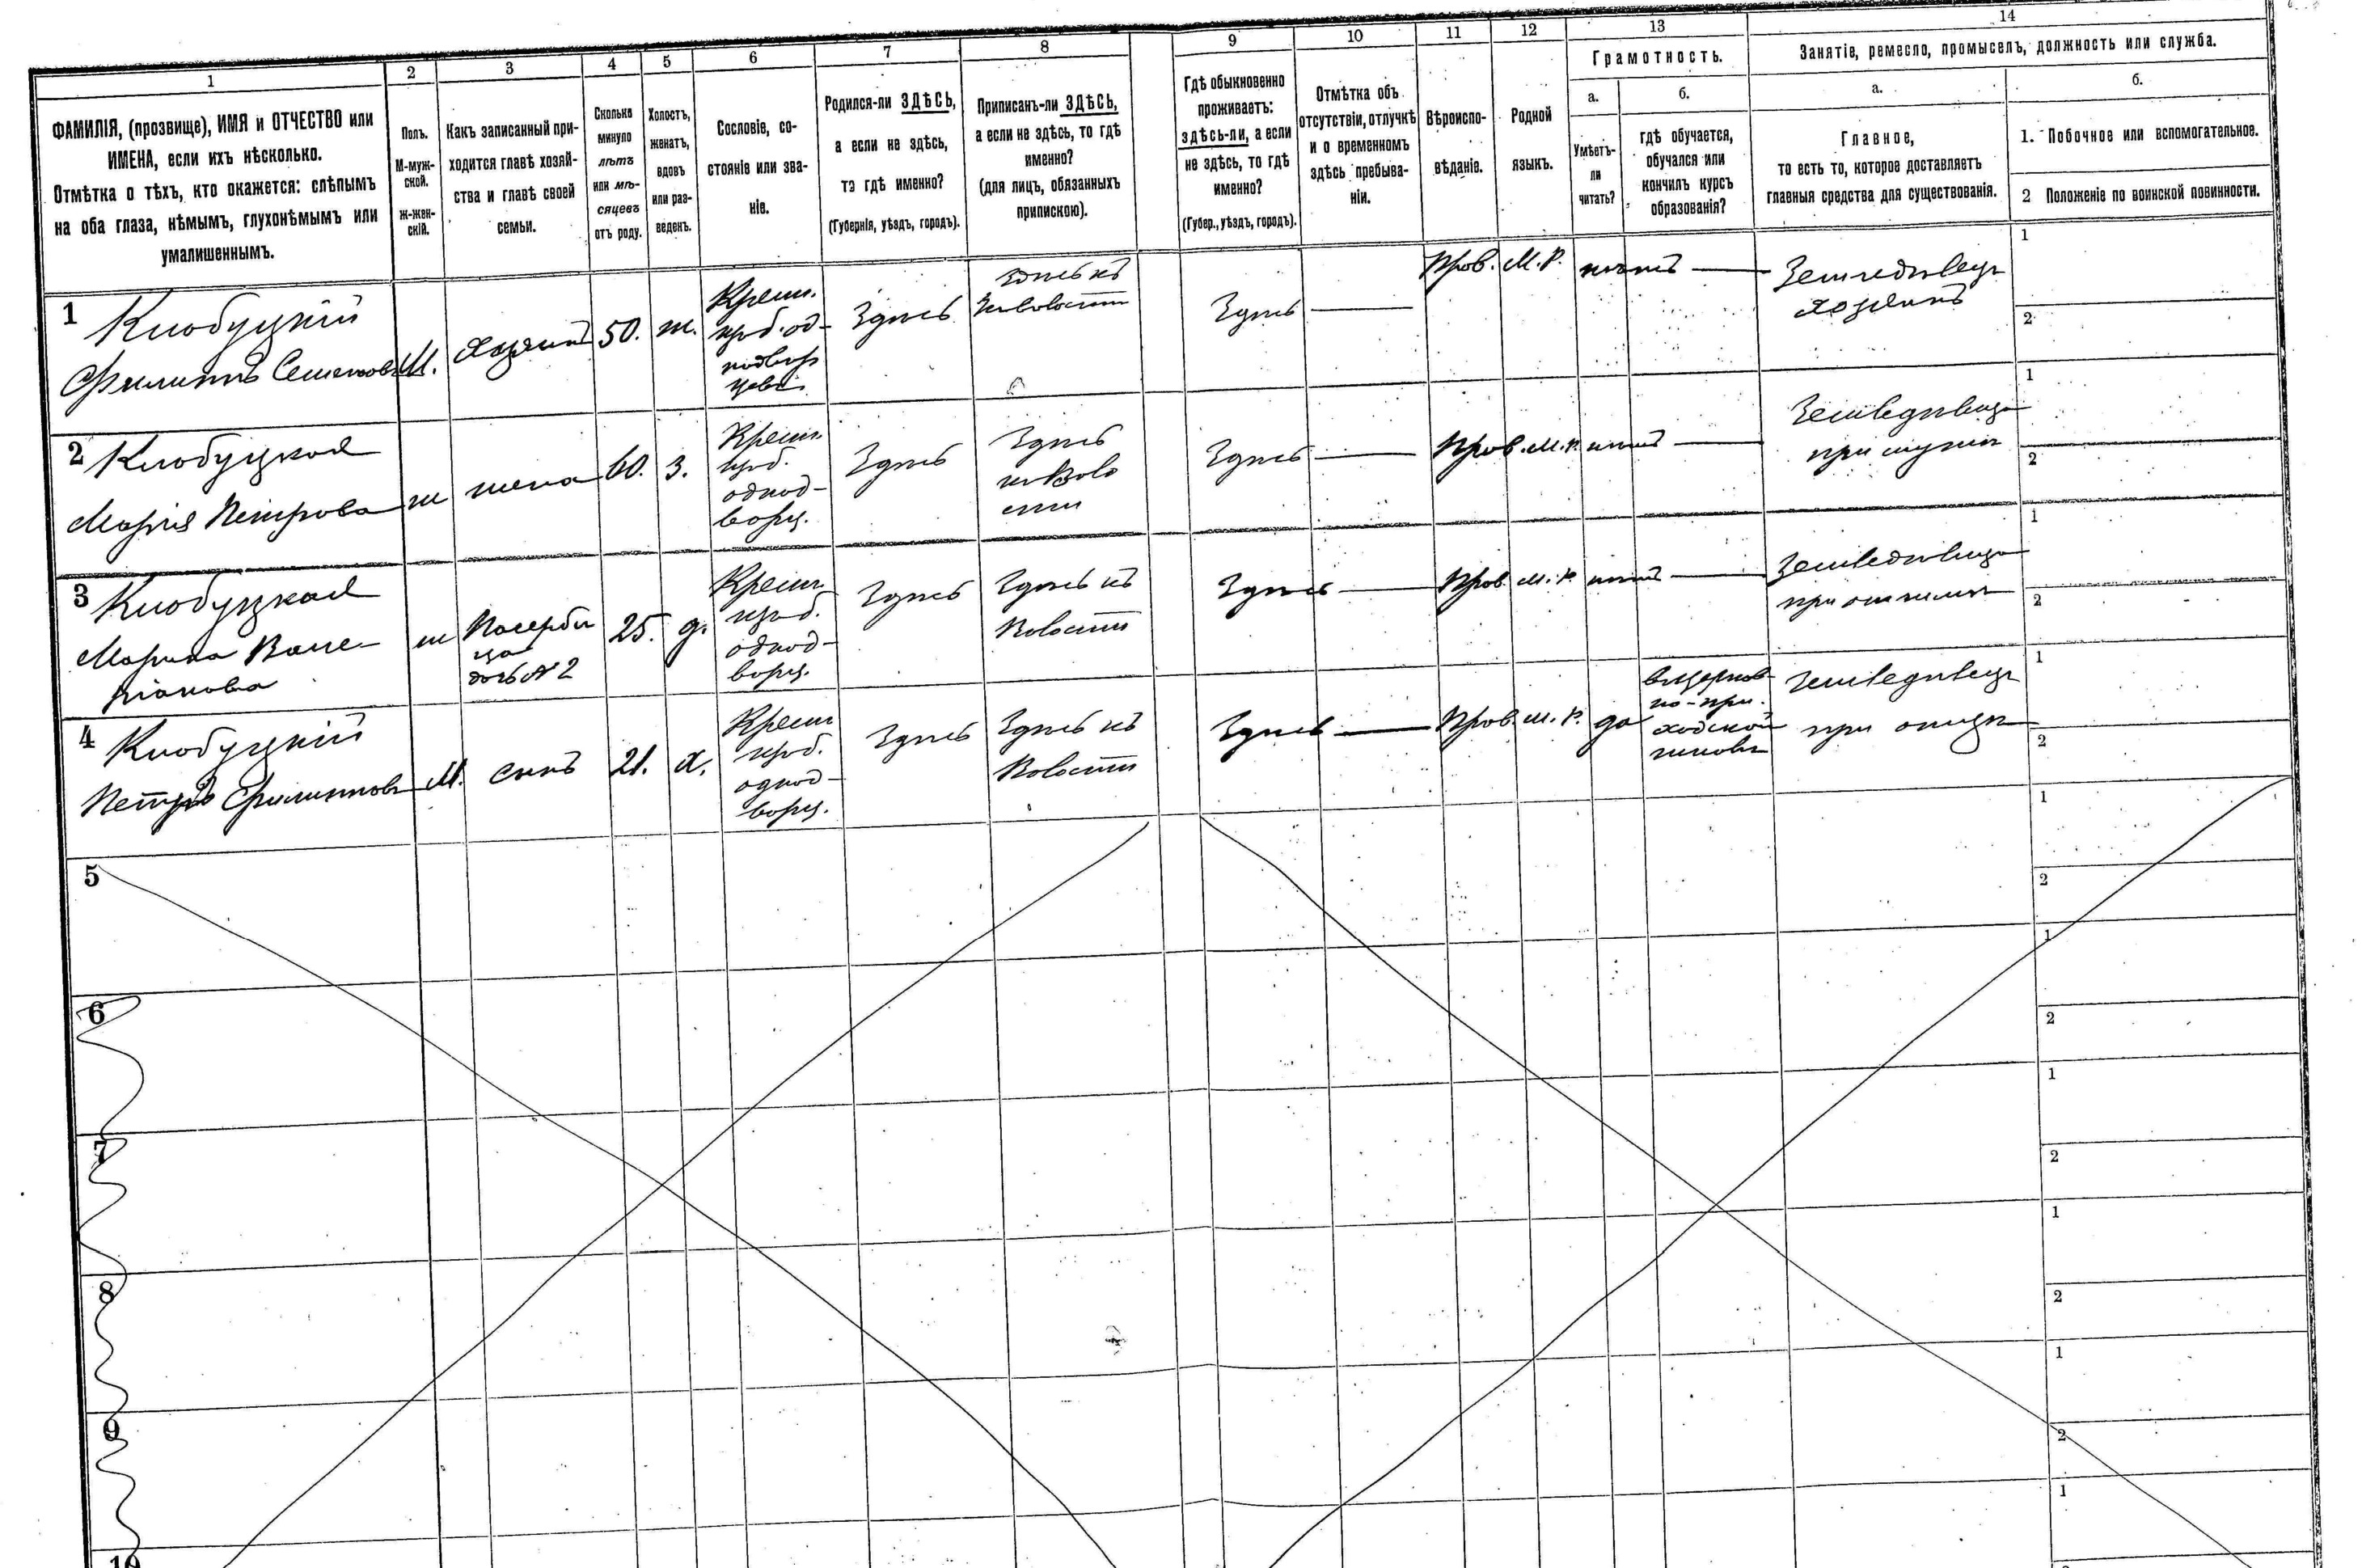 1
2
3
4
5
6
7
8
9
10
11
12
13
14
ФАМИЛІЯ, (прозвище), ИМЯ и ОТЧЕСТВО или
ИМЕНА, если ихъ нѣсколько.
Отмѣтка о тѣхъ, кто окажется: слѣпымъ
на оба глаза, нѣмымъ, глухонѣмымъ или
умалишеннымъ.
Полъ.
М-муж-
ской.
ж-жен-
скій.
Какъ записанный при-
ходится главѣ хозяй-
ства и главѣ своей
семьи.
Сколько
минуло
лѣтъ
или мѣ-
сяцевъ
отъ роду.
Холостъ,
женатъ,
вдовъ
или раз-
веденъ.
Сословіе, со-
стояніе или зва-
ніе.
Родился-ли ЗДѢСЬ,
а если не здѣсь,
то гдѣ именно?
(Губернія, уѣздъ, городъ).
Приписанъ-ли ЗДѢСЬ,
а если не здѣсь, то гдѣ
именно?
(для лицъ, обязанныхъ
припискою).
Гдѣ обыкновенно
проживаетъ:
здѣсь-ли, а если
не здѣсь, то гдѣ
именно?
(Губер., уѣздъ, городъ).
Отмѣтка объ
отсутствіи, отлучкѣ
и о временномъ
здѣсь пребыва-
ніи.
Вѣроиспо-
вѣданіе.
Родной
языкъ.
Грамотность.
а.
Умѣетъ-
ли
читать?
б.
гдѣ обучается,
обучался или
кончилъ курсъ
образованія?
Занятіе, ремесло, промыселъ, должность или служба.
а.
Главное,
то есть то, которое доставляетъ
главныя средства для существованія.
б.
1. Побочное или вспомогательное.
2 Положеніе по воинской повинности.
1 Клобуцкій
Филиппъ Семеновъ
М.
хозяинъ
50.
ж.
Крест.
Здѣсь
Здѣсь къ
Здѣсь
Прав.
М. Р.
нѣтъ
Земледѣлецъ
хозяинъ
1
2
2 Клобуцкая
Марія Петрова
ж
жена
60.
з.
Крест.
однод-
ворц.
Здѣсь
Здѣсь
къ Воло
сти
Здѣсь
Прав.
М. Р.
нѣтъ
Земледѣлица
при мужѣ
1
2
3 Клобуцкая
Марина Вале-
ріанова
ж
Падчери
ца
дочь №2
25.
д.
Крест.
однод-
ворц.
Здѣсь
Здѣсь къ
Волости
Здѣсь
Прав.
М. Р.
нѣтъ
Земледѣлица
при отчимѣ
1
2
4 Клобуцкій
Петръ Филипповъ
М.
сынъ
21.
х.
Крест.
однод-
ворц.
Здѣсь
Здѣсь къ
Волости
Здѣсь
Прав.
М. Р.
да
въ церков-
но-при-
ходской
школѣ
Земледѣлецъ
при отцѣ
1
2
5
1
2
6
1
2
7
1
2
8
1
2
9
1
2
10
1